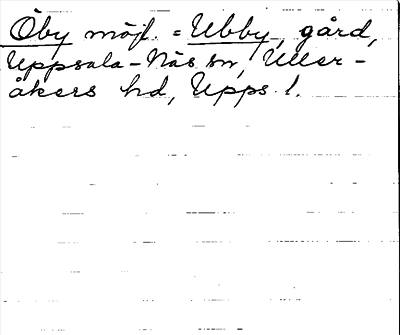 Öby möjl. = Ubby, gård,
Uppsala-Näs sn, Uller-
åkers hd, Upps. l.